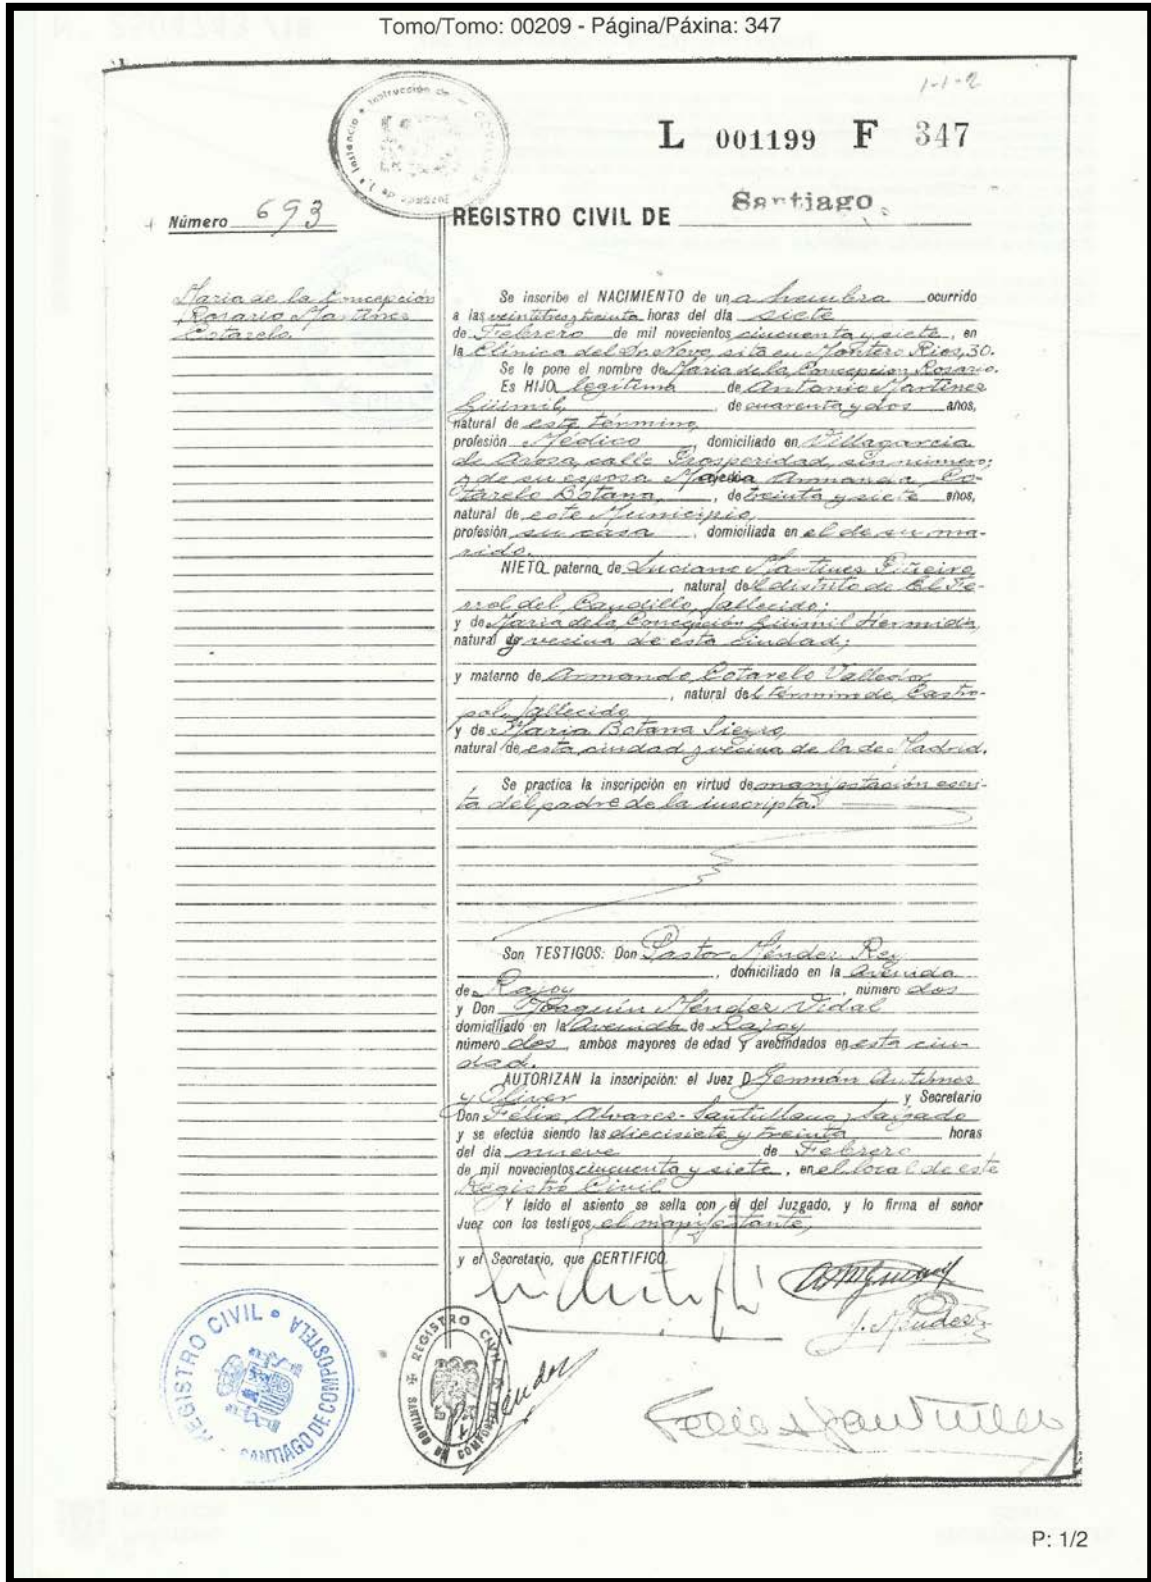 Tomo/Tomo: 00209 - Página/Páxina: 347
1-1-2
L 001199 F 347
Número 693
REGISTRO CIVIL DE Santiago.
Maria de la Concepción
Rosario Martínez
Cotarelo.
Se inscribe el NACIMIENTO de una hembra ocurrido
a las veintitres y treinta horas del día siete
de Febrero de mil novecientos cincuenta y siete, en
la Clínica del Dr. Novo, sita en Montero Rios, 30.
Se le pone el nombre de Maria de la Concepcion Rosario.
Es HIJO legítima de Antonio Martínez
Güimil, de cuarenta y dos años,
natural de este término,
profesión Médico, domiciliado en Villagarcia
de Arosa, calle Prosperidad, sin número;
y de su esposa Maria Armanda Co-
tarelo Botana, de treinta y siete años,
natural de este Municipio,
profesión su casa, domiciliada en el de su ma-
rido.
NIETO paterna de Luciano Martinez Piñeiro,
natural del distrito de El Fe-
rrol del Caudillo, fallecido;
y de Maria de la Concepción Güimil Hermida,
natural y vecina de esta ciudad;
y materno de Armando Cotarelo Valledor,
natural del término de Castro-
pol, fallecido
y de Maria Botana Sieyro,
natural de esta ciudad y vecina de la de Madrid.
Se practica la inscripción en virtud de manifestación escri-
ta del padre de la inscripta.
Son TESTIGOS: Don Pastor Méndez Rey
, domiciliado en la Avenida
de Rajoy, número dos
y Don Joaquín Méndez Vidal
domiciliado en la Avenida de Rajoy
número dos, ambos mayores de edad y avecindados en esta ciu-
dad.
AUTORIZAN la inscripción: el Juez D. Germán
y Oliver y Secretario
Don Félix Alvarez-Santullano Salgado
y se efectúa siendo las diecisiete y treinta horas
del día nueve de Febrero
de mil novecientos cincuenta y siete, en el local de este
Registro Civil
Y leído el asiento se sella con el del Juzgado, y lo firma el señor
Juez con los testigos, el manifestante,
y el Secretario, que CERTIFICO.
J. Méndez
REGISTRO CIVIL
SANTIAGO DE COMPOSTELA
REGISTRO CIVIL
SANTIAGO DE COMPOSTELA
P: 1/2